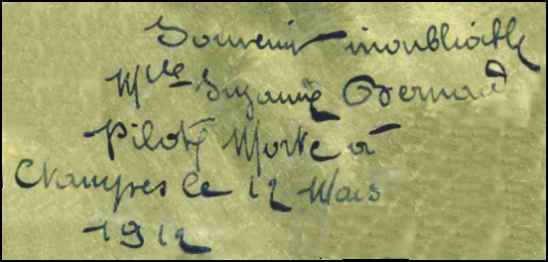 Souvenir inoubliable
Mlle Suzanne Bernard
Pilote Morte à
Etampes le 12 Mars
1912